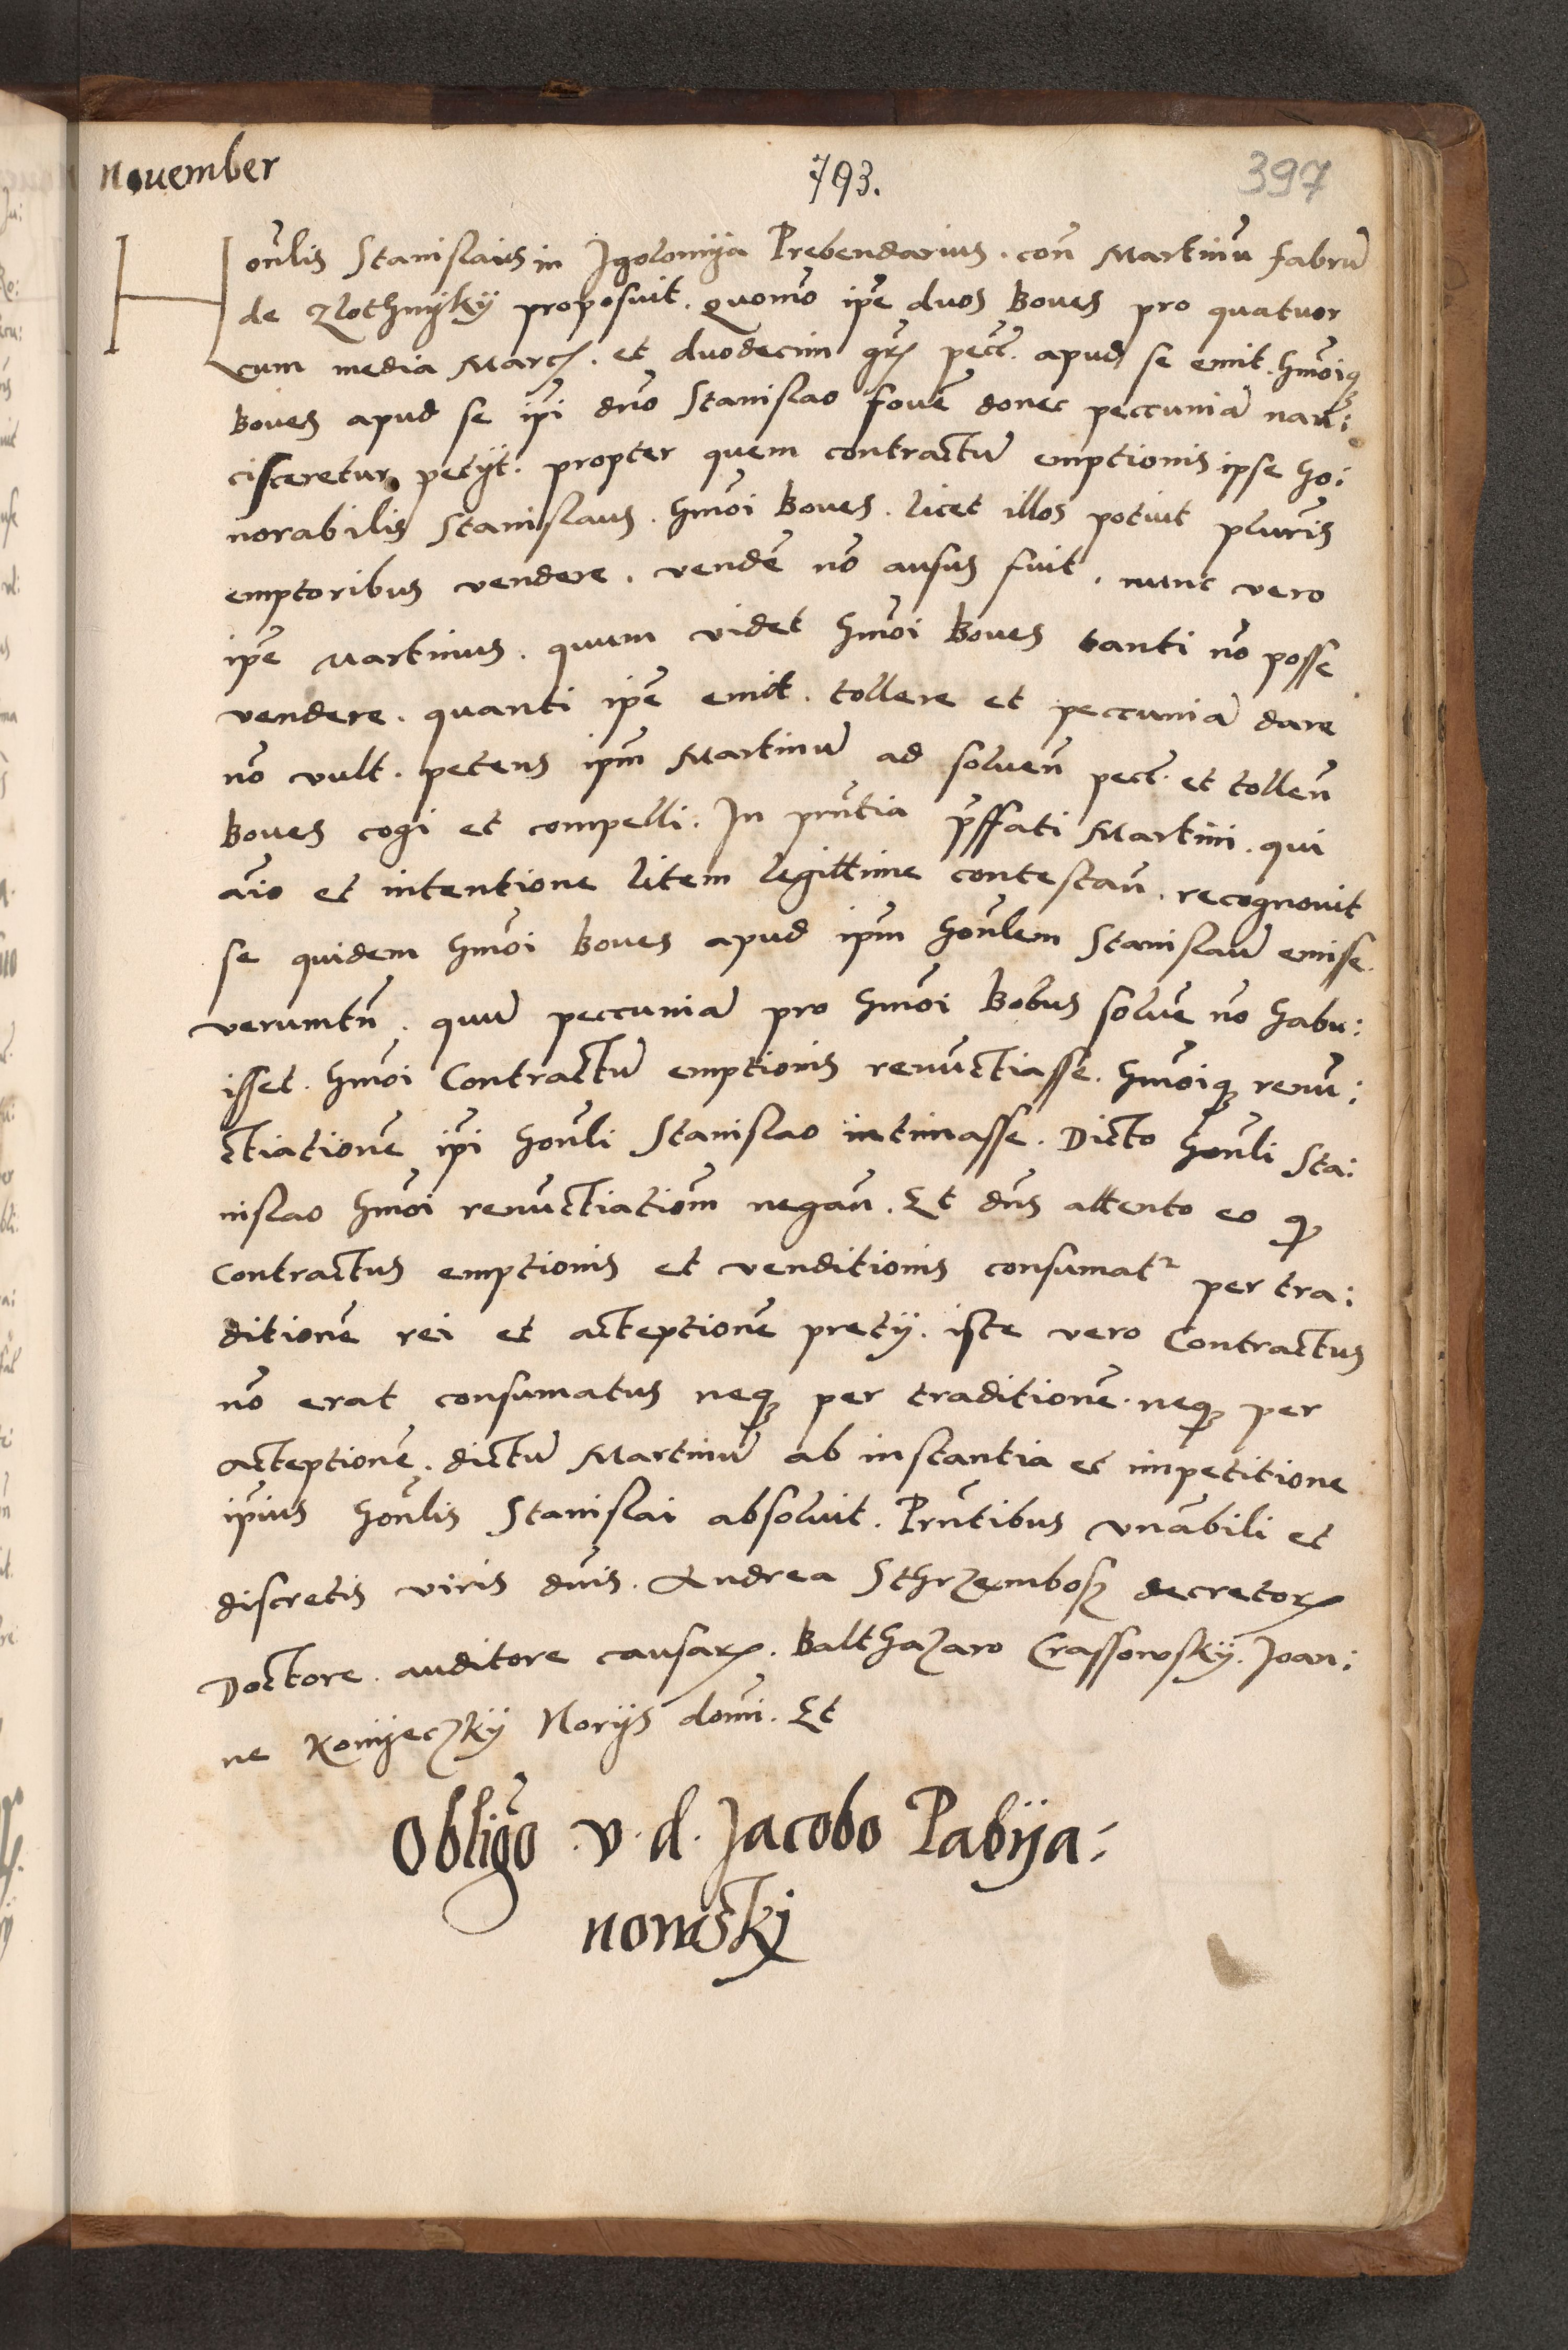 November
793.
397
Honᷓlis Stanislaus in Jgolomÿa Prebendarius. con̄ Martinū fabrū
de Zlothnÿkÿ proposuit. Quomō ip̄e duos boues pro quatuor
cum media Marcꝭ. et duodecim grꝭ pecc̄. apud se emit. hm̄oiqꝫ
boues apud se ip̄i dn̄o Stanislao fouē donec peccuniā nan:
cisceretur petÿt. propter quem contractū emptionis ipse ho:
norabilis Stanislaus. hm̄oi boues. licet illos potuit pluris
emptoribus vendere. vendē nō ausus fuit. nunc vero
ip̄e Martinus. quum videt hm̄oi boues tanti nō posse
vendere. quanti ip̄e emit. tollere et peccuniā dare
nō vult. petens ip̄m Martinū ad soluen̄ pecc̄. et tollen̄
boues cogi et compelli. In pn̄tia p̄ffati Martini. qui
aīo et intentione litem legittime contestan̄. recognouit
se quidem hm̄oi boues apud ip̄m hon̄lem Stanislaū emisse.
verumtn̄. quū peccuniā pro hm̄oi bobus soluē nō habu:
isset. hm̄oi Contractū emptionis renūctiasse. hm̄oiqꝫ renū:
ctiationē ip̄i hon̄li Stanislao intimasse. Dicto hon̄li Sta:
nislao hm̄oi renūctiatiom̄ negan̄. Et dn̄s attento eo ꝙ
Contractus emptionis et venditionis consumatr per tra:
ditionē rei et acceptionē pretÿ. iste vero Contractus
nō erat consumatus neqꝫ per traditionē. neqꝫ per
acceptionē. dictū Martinū ab instantia et impetitione
ip̄ius hon̄lis Stanislai absoluit. Pn̄tibus vn̄abili et
discretis viris dn̄is. Andrea Sthrzembosz decretoꝝ
Doctore. auditore causaꝝ. Balthazaro Crassowskÿ. Joan:
ne Konÿeczkÿ Norÿs domī. Et
Obligō v. d. Jacobo Pabÿa:
nowskj